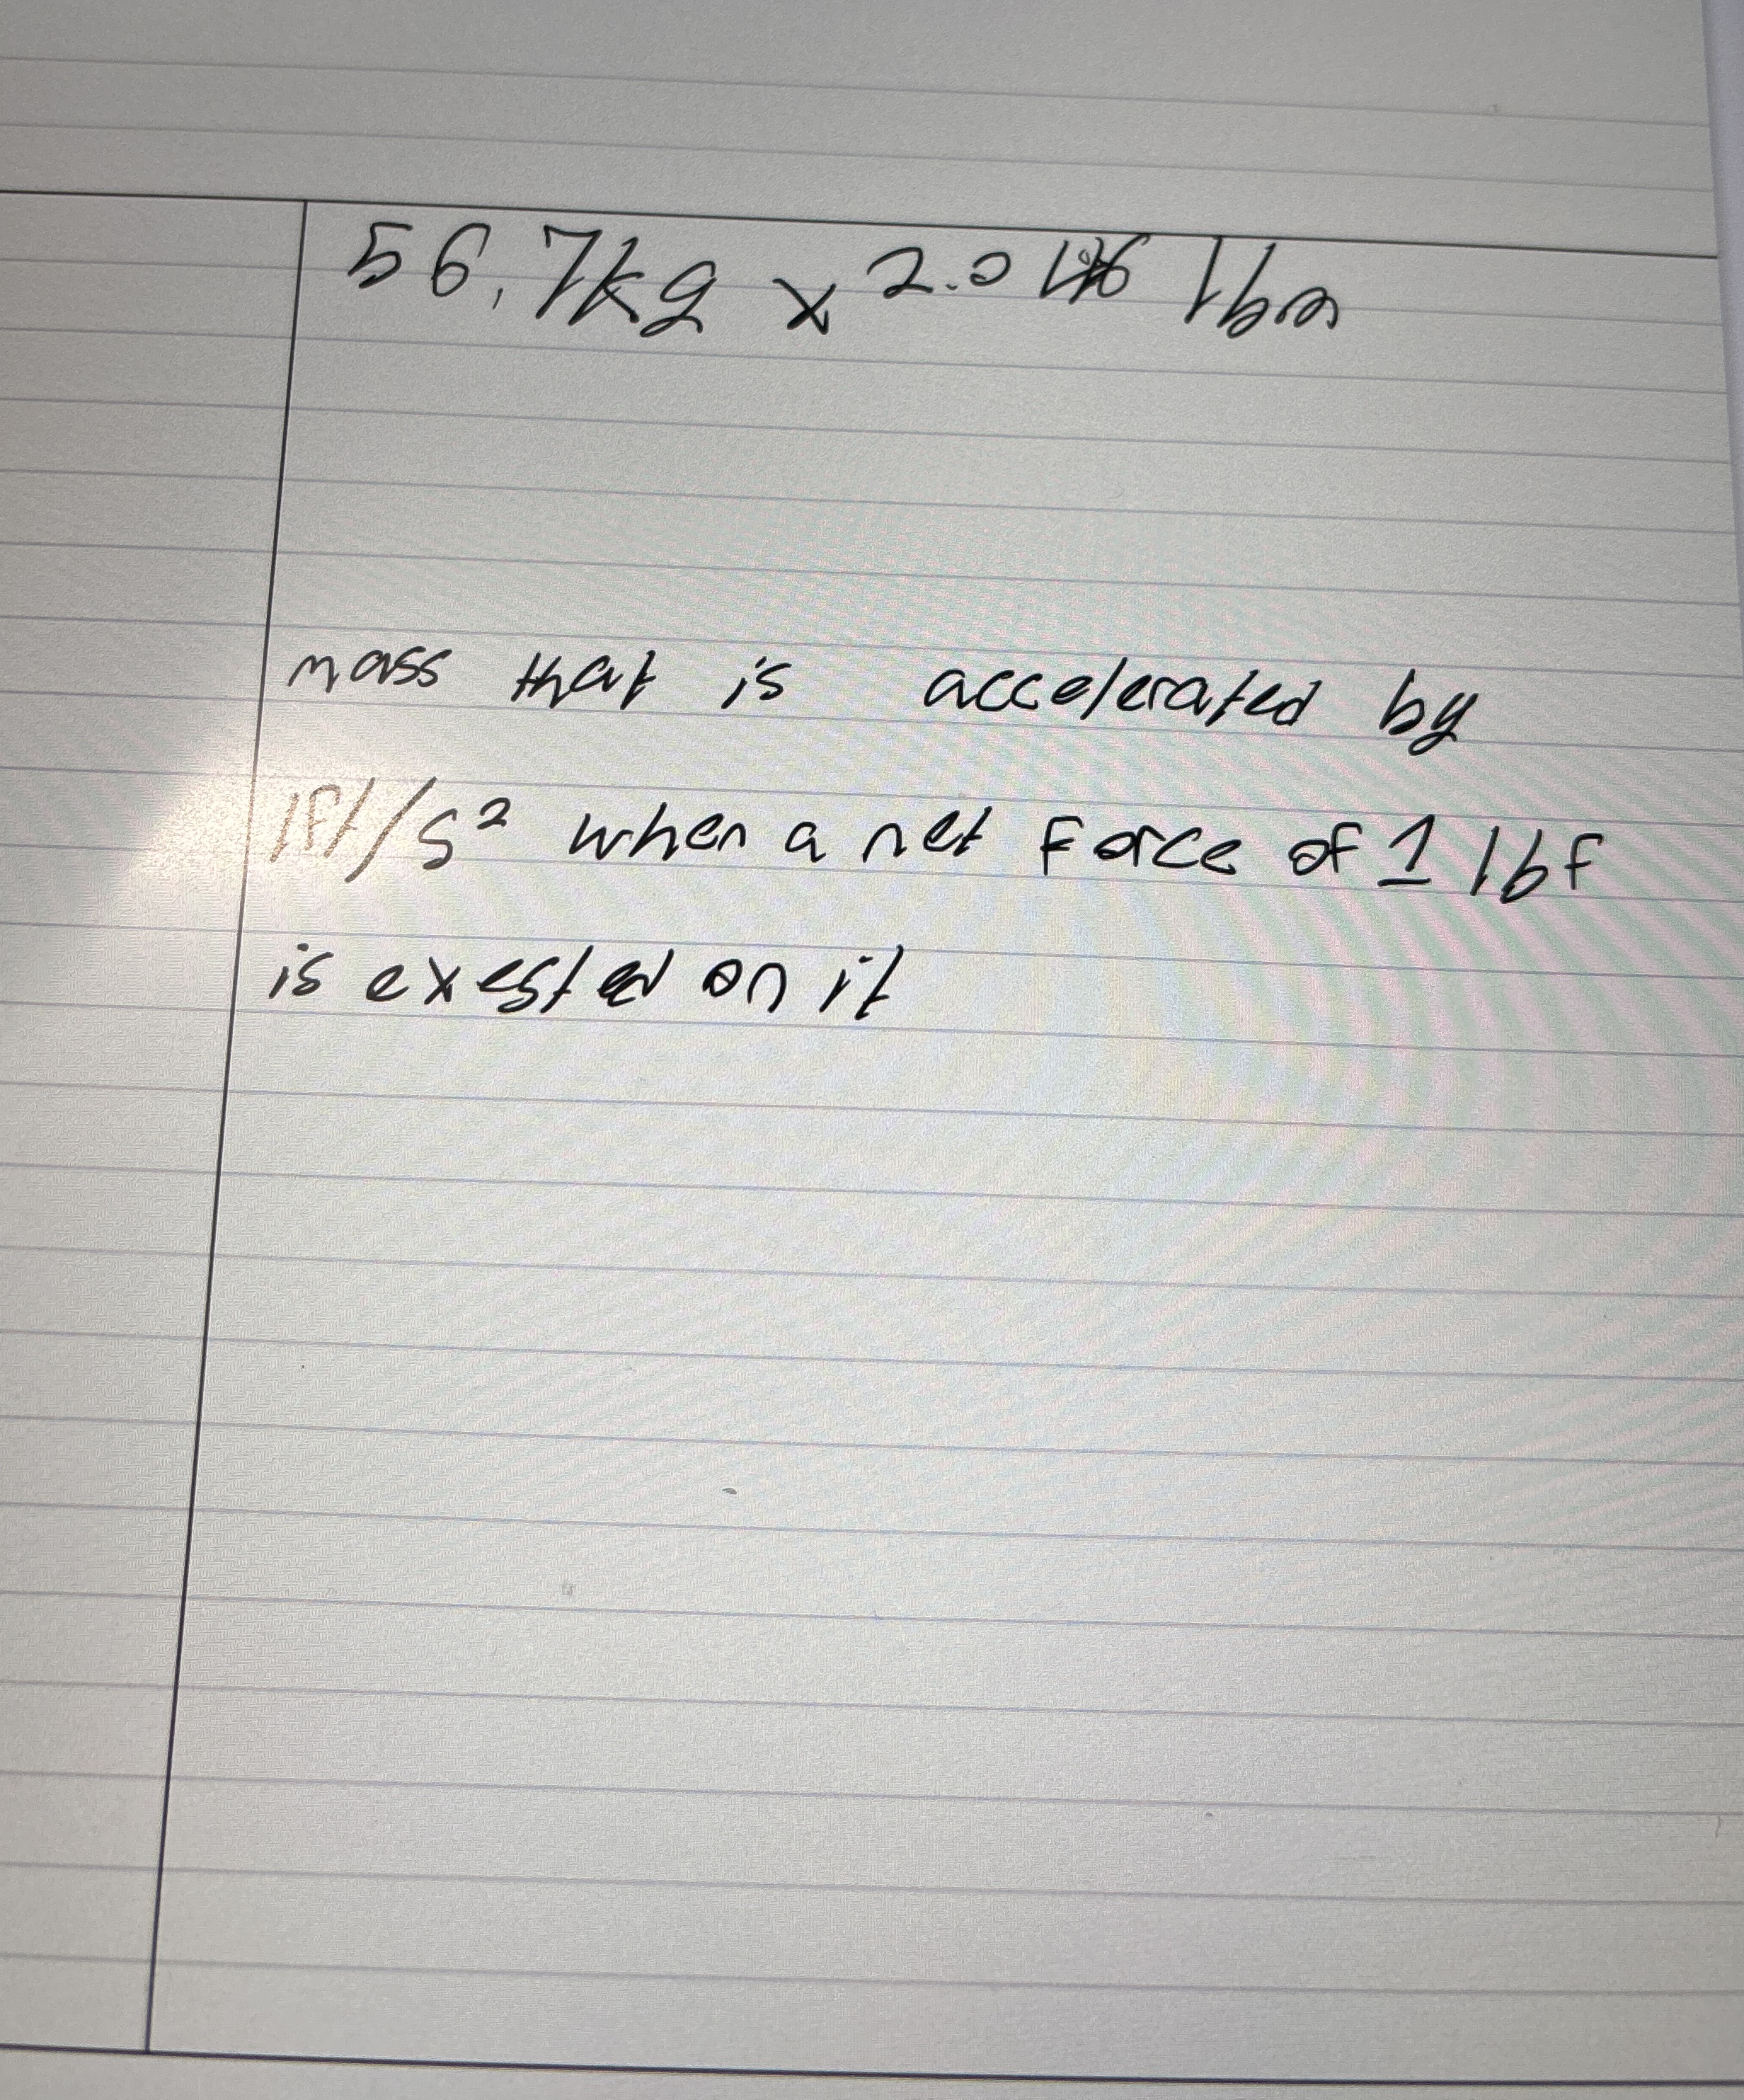 56.7kg x 2.046 lbm
mass that is accelerated by
1ft/s² when a net force of 1 lbf
is exested on it